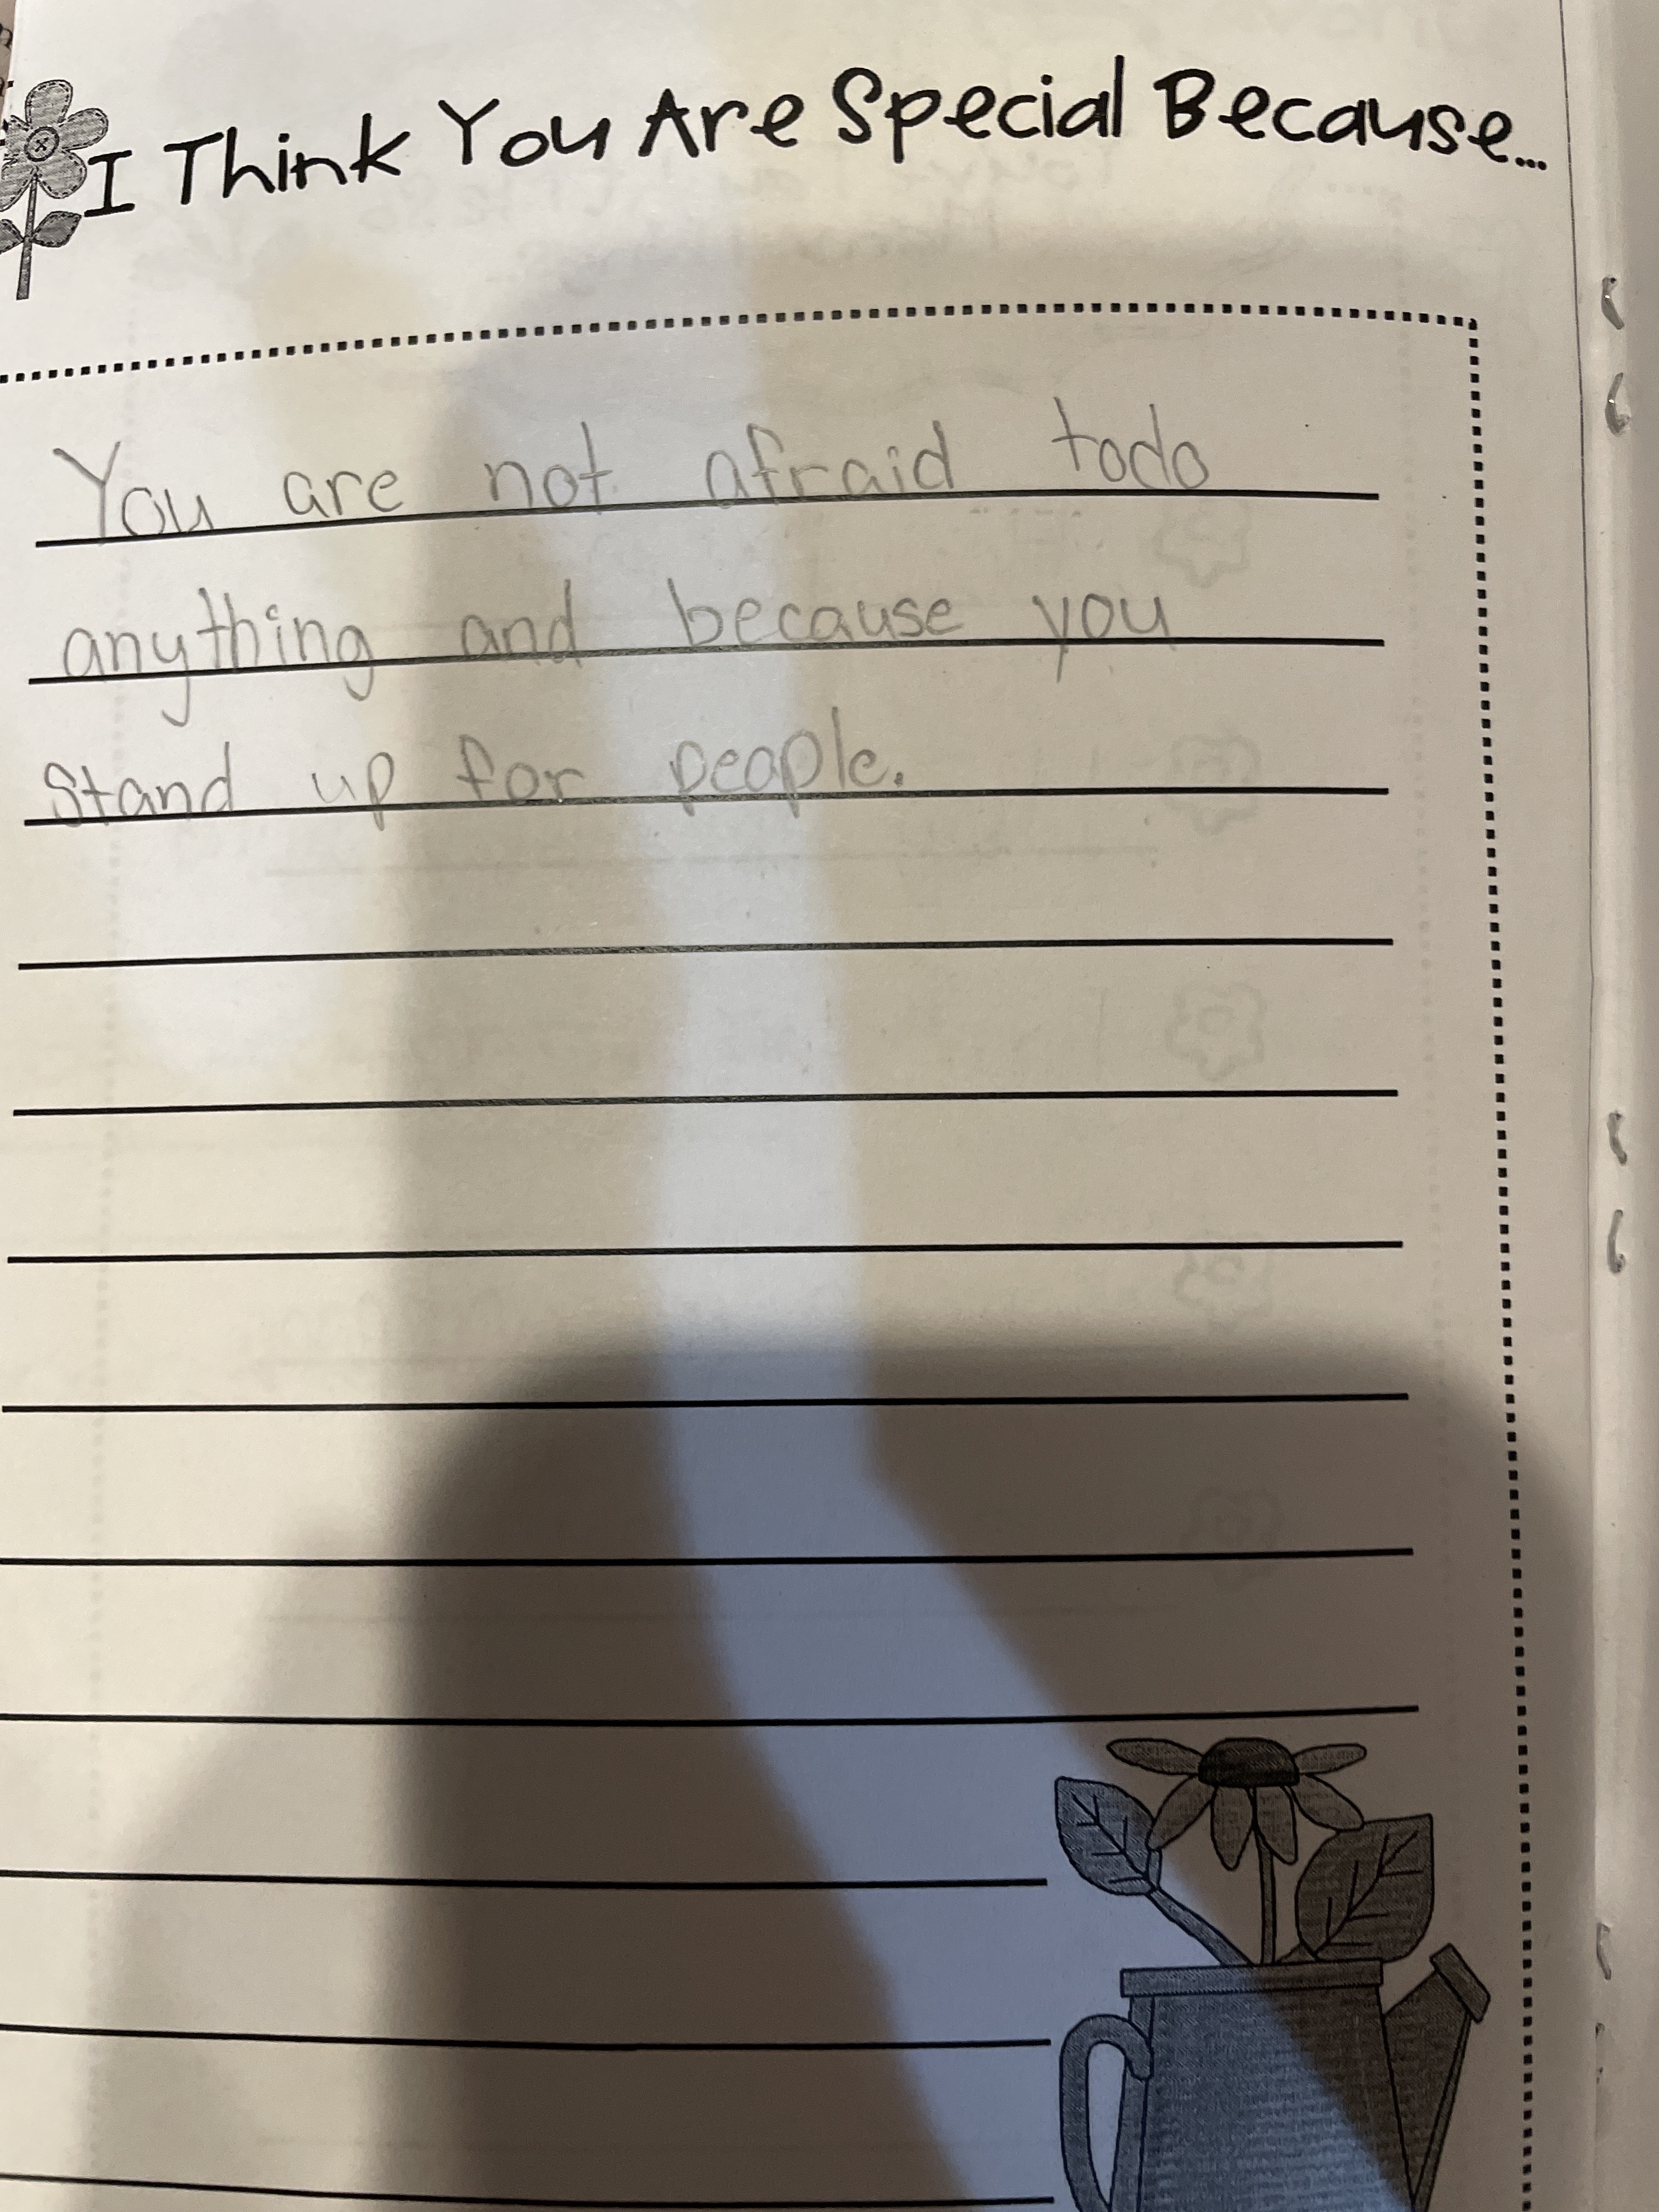 I Think You Are Special Because...
You are not afraid todo
anything and because you
stand up for people.